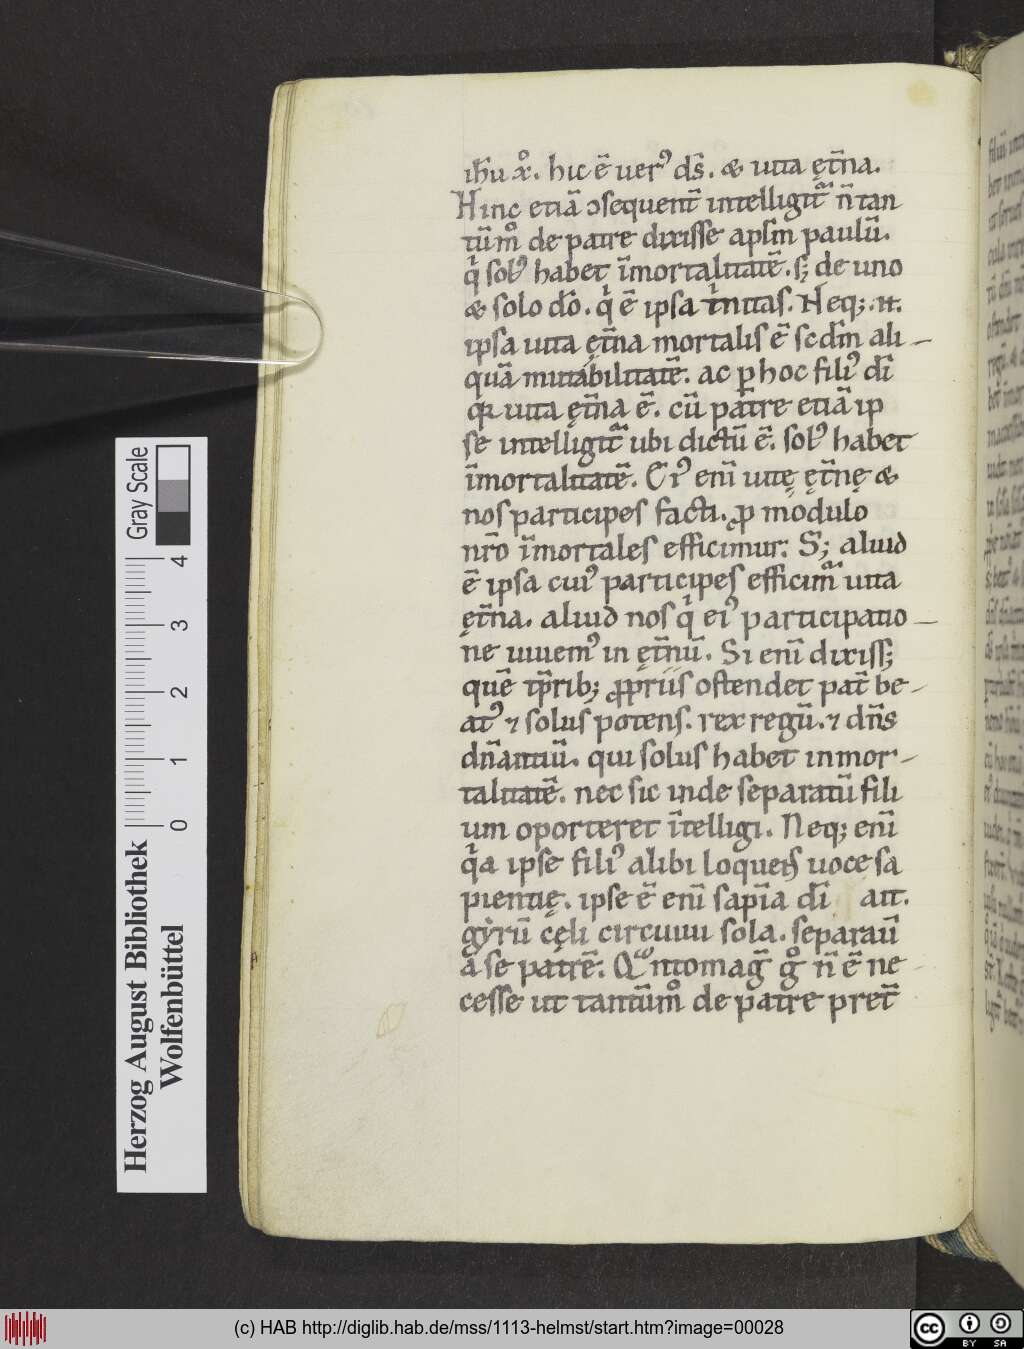 ih̅u xº. hic ē uerꝰ ds̅. & uita ęt̅na.
Hinc etiā ɔsequent̅ intelligit᷑ n̅ tan
tūmº de patre dixisse apl̅m paulū.
qͥ solꝰ habet īmortalitatē. sꝫ de uno
& solo dō. qͥ ē ipsa t̅nitas. Neqꝫ .n.
ipsa uita ęt̅na mortalis ē scd̅m ali-
quā mutabilitatē. ac ꝑ hoc filiꝰ di̅
qꝛ uita ęt̅na ē. cū patre etiā ip
se intelligit᷑ ubi dictū ē. solꝰ habet
īmortalitatē. Eiꝰ eni̅ uitę ęt̅nę &
nos participes facti. ꝓ modulo
nr̅o īmortales efficimur. Sꝫ aliud
ē ipsa cuiꝰ participes efficim᷑ uita
ęt̅na. aliud nos qͥ eiꝰ participatio-
ne uiuemꝰ in ęt̅nū. Si eni̅ dixissꝫ
quē tp̅ribꝫ ꝓpriis ostendet pat̅ be-
atꝰ ⁊ solus potens. rex regū. ⁊ dn̅s
dn̅antiū. qui solus habet inmor-
talitatē. nec sic inde separatū fili
um oporteret īntelligi. Neqꝫ eni̅
qͥa ipse filiꝰ alibi loquens uoce sa
pientię. ipse ē eni̅ sapi̅a di̅ ait.
gyrū cęli circuiui sola. separau̅
a se patrē. Qºntomag̅ gº n̅ ē ne-
cesse ut tantūmº de patre pret̅
Herzog August Bibliothek
Wolfenbüttel
0 1 2 3 4
Gray Scale
(c) HAB http://diglib.hab.de/mss/1113-helmst/start.htm?image=00028
cc BY SA